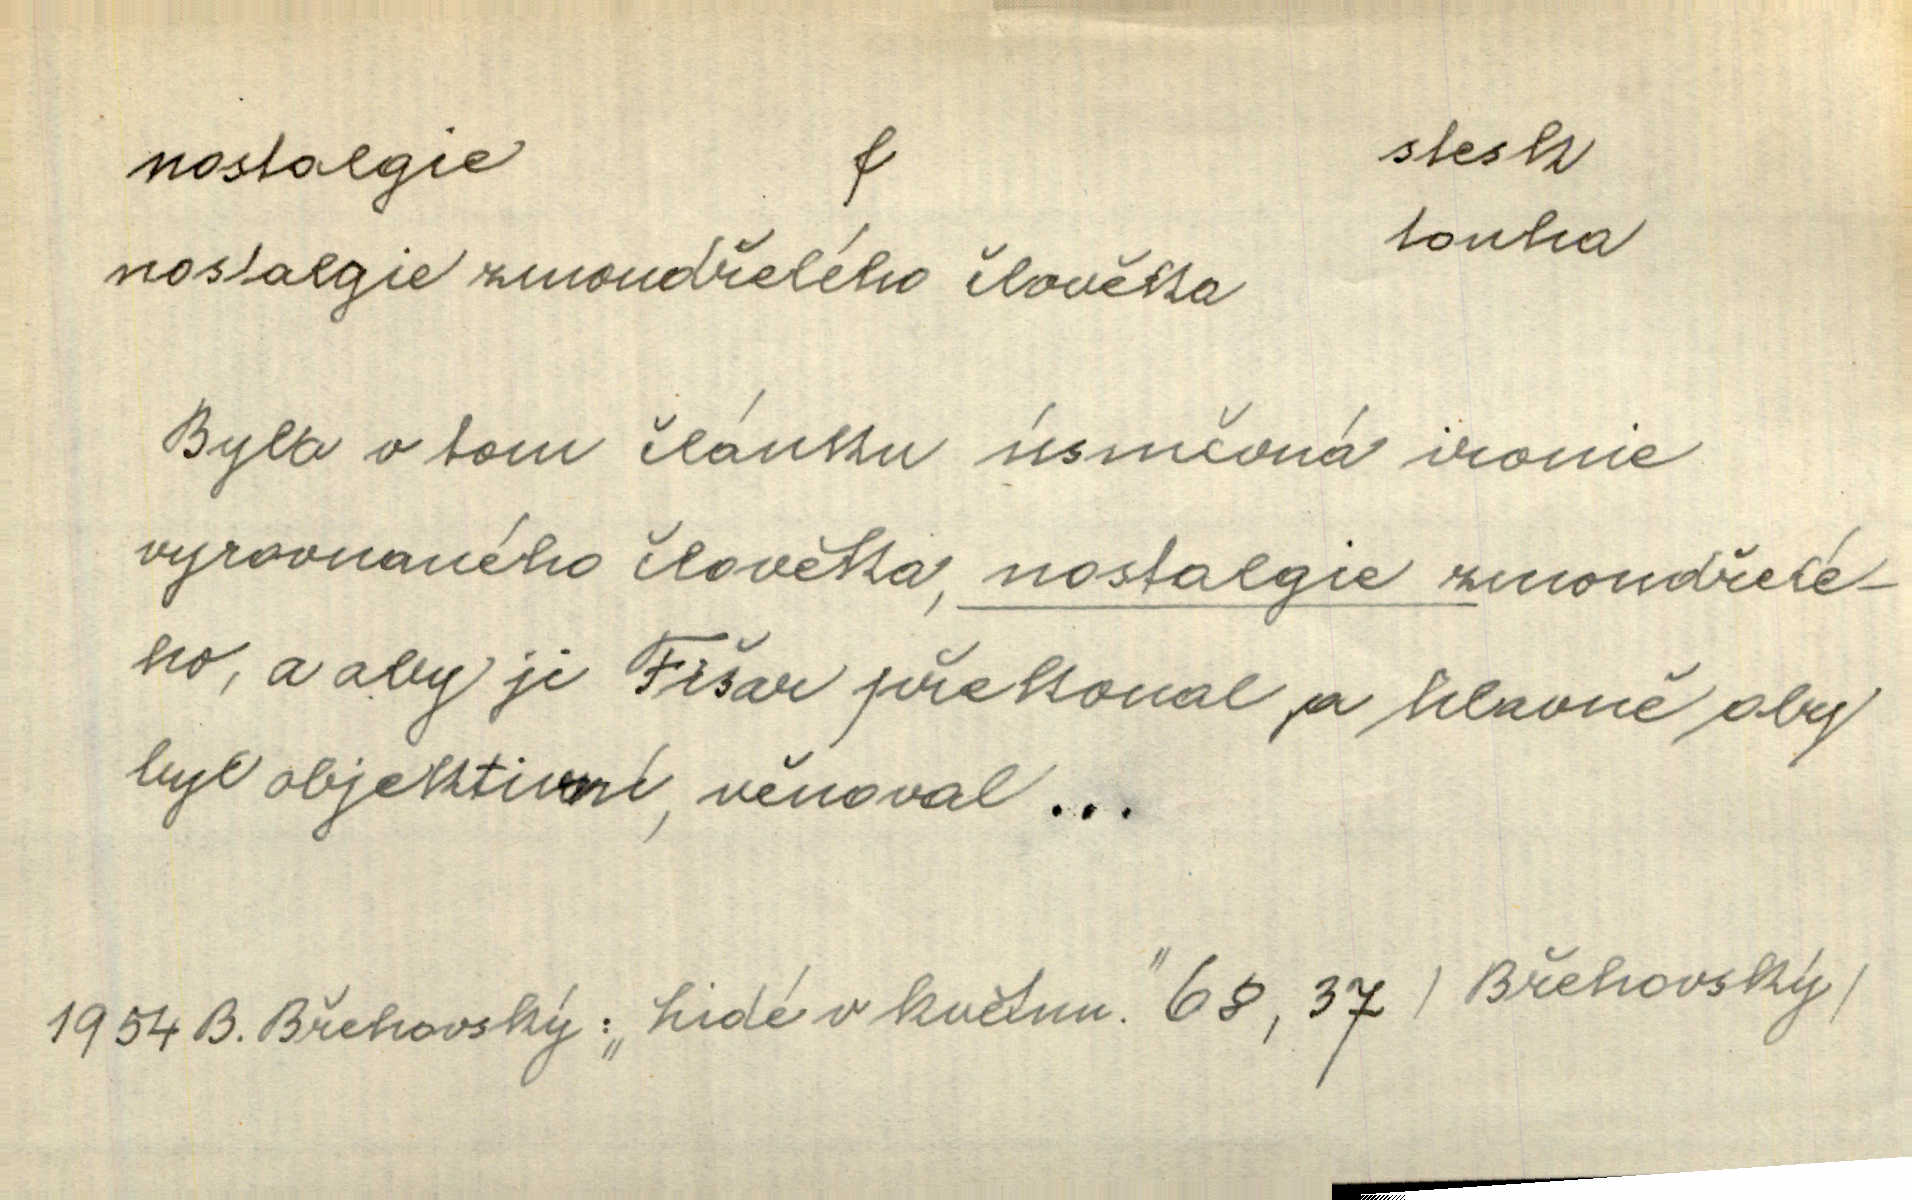 nostalgie f stesk
touha
nostalgie zmoudřelého člověka
Byla v tom článku úsměvná ironie
vyrovnaného člověka, nostalgie zmoudřelé-
ho, a aby ji Fišar překonal, a hlavně aby
byl objektivní, věnoval ...
1954 B. Břehovský: „Lidé v květnu." 68, 37 / Břehovský /